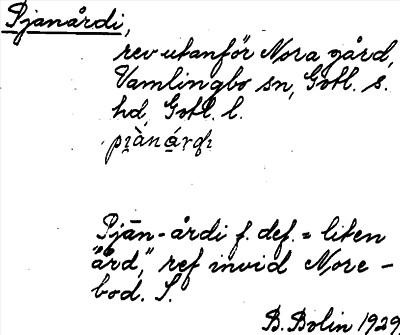 Pjanårdi,
rev utanför Nora gård,
Vamlingbo sn, Gotl. s.
hd, Gotl. l.
Pjān-årdi f. def. = liten
"ård," ref invid Nore-
bod. S.
B. Bolin 1929.